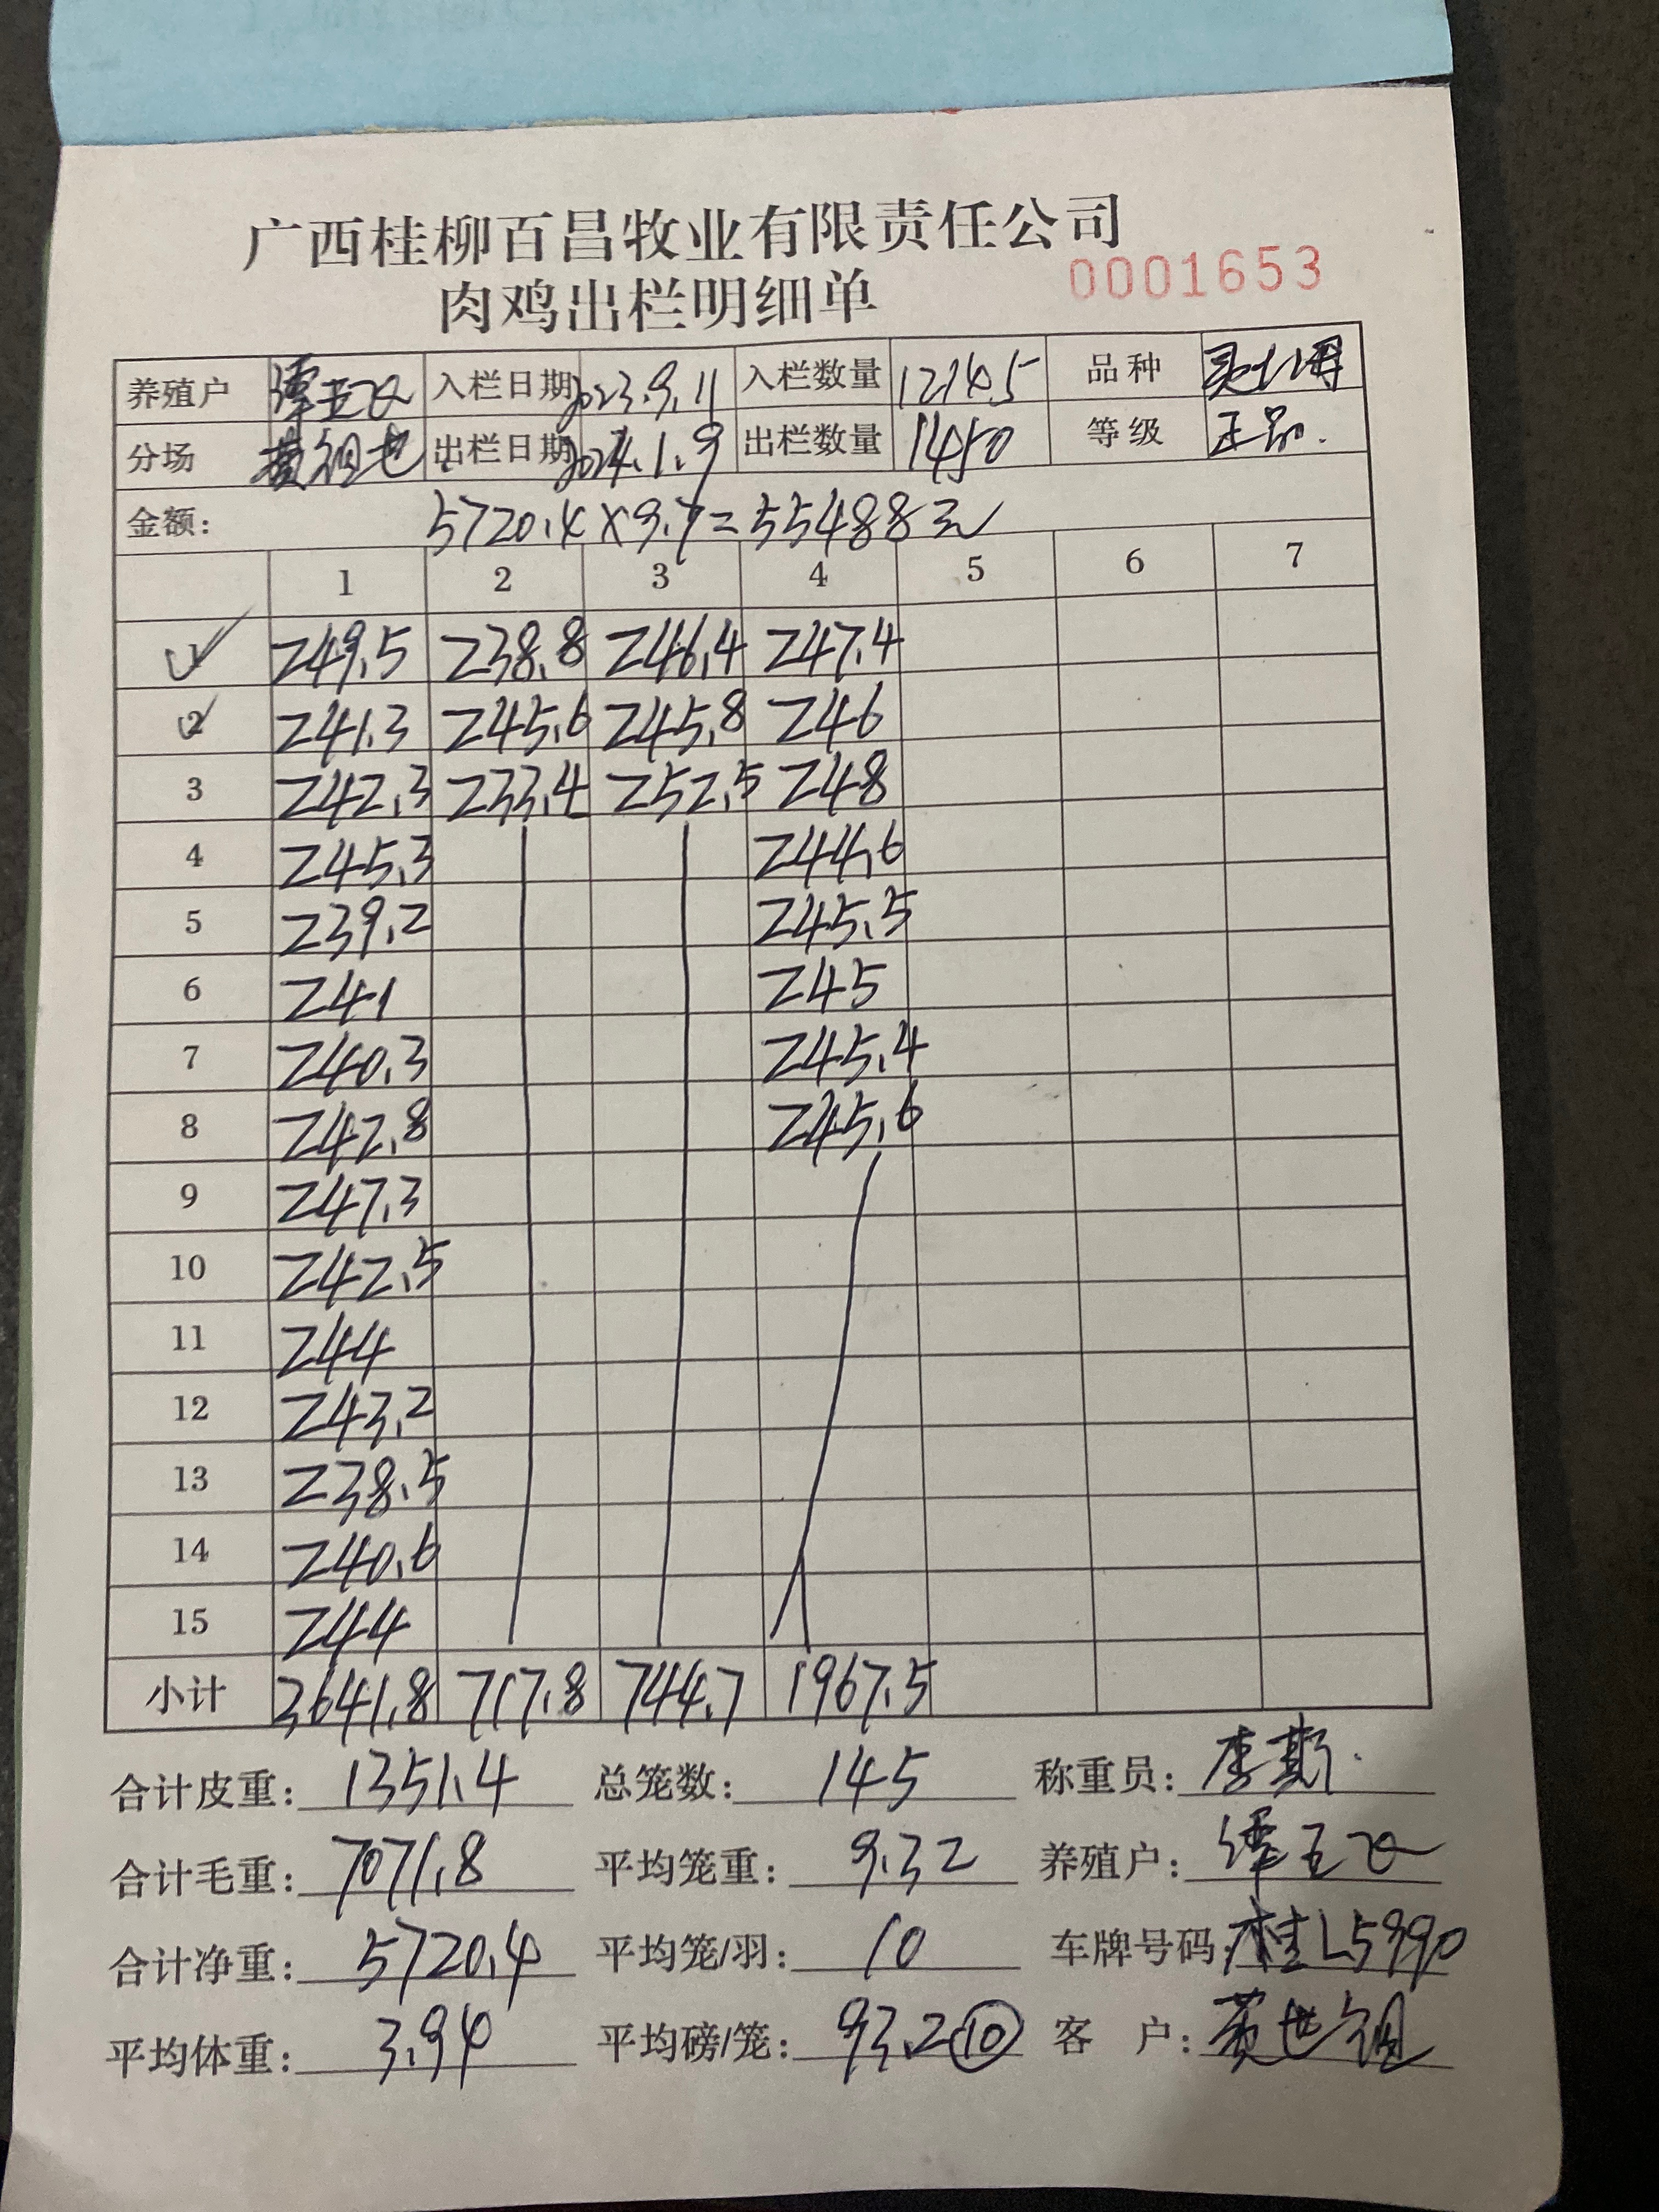 广西桂柳百昌牧业有限责任公司
肉鸡出栏明细单
0001653
养殖户 谭五 入栏日期 2023.9.11 入栏数量 12145 品种
分场 黄祖世 出栏日期 2024.1.9 出栏数量 1450 等级 正品.
金额: 5720.4×9.7=55488元
1 2 3 4 5 6 7
1 249.5 238.8 246.4 247.4
2 241.3 245.6 245.8 246
3 242.3 233.4 252.5 248
4 245.3 244.6
5 239.2 245.5
6 241 245
7 240.3 245.4
8 242.8 245.6
9 247.3
10 242.5
11 244
12 243.2
13 238.5
14 240.6
15 244
小计 3641.8 717.8 744.7 1967.5
合计皮重: 1351.4 总笼数: 145 称重员: 李斯
合计毛重: 7071.8 平均笼重: 9.32 养殖户: 谭五
合计净重: 5720.4 平均笼/羽: 10 车牌号码: 桂L5990
平均体重: 3.94 平均磅/笼: 93.2 ⑩ 客 户: 黄世祖